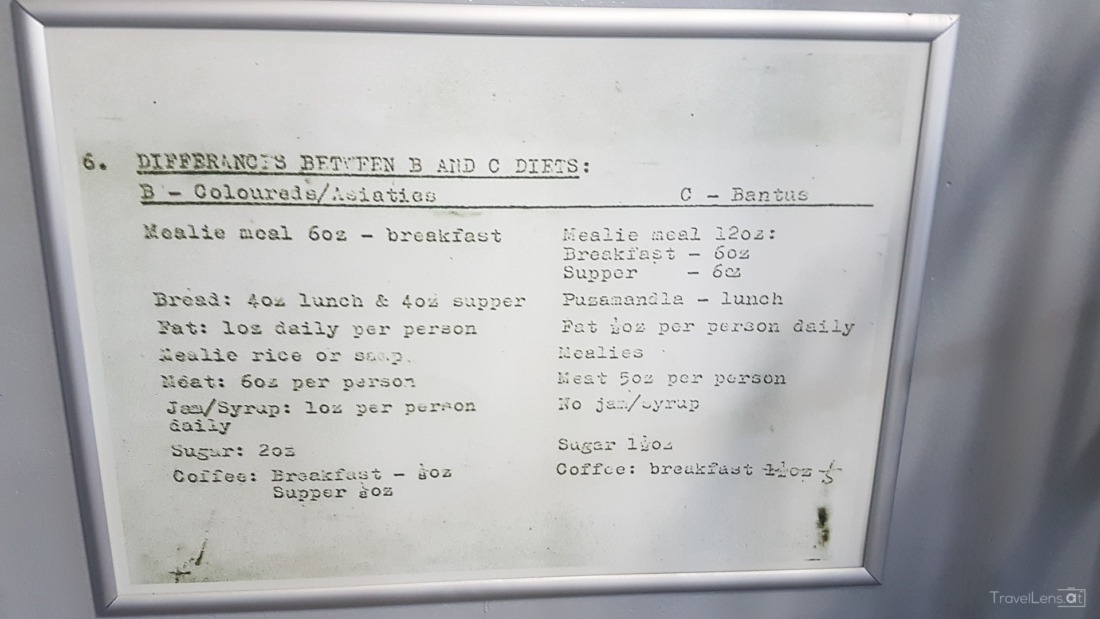 6. DIFFERANCES BETWEEN B AND C DIETS:
B - Coloureds/Asiaties C - Bantus
Mealie meal 6oz - breakfast Mealie meal 12oz:
Breakfast - 6oz
Supper - 6oz
Bread: 4oz lunch & 4oz supper Puzamandla - lunch
Fat: 1oz daily per person Fat ½oz per person daily
Mealie rice or samp. Mealies
Meat: 6oz per person Meat 5oz per person
Jam/Syrup: 1oz per person No jam/syrup
daily
Sugar: 2oz Sugar 1½oz
Coffee: Breakfast - oz Coffee: breakfast
Supper oz
TravelLens.at